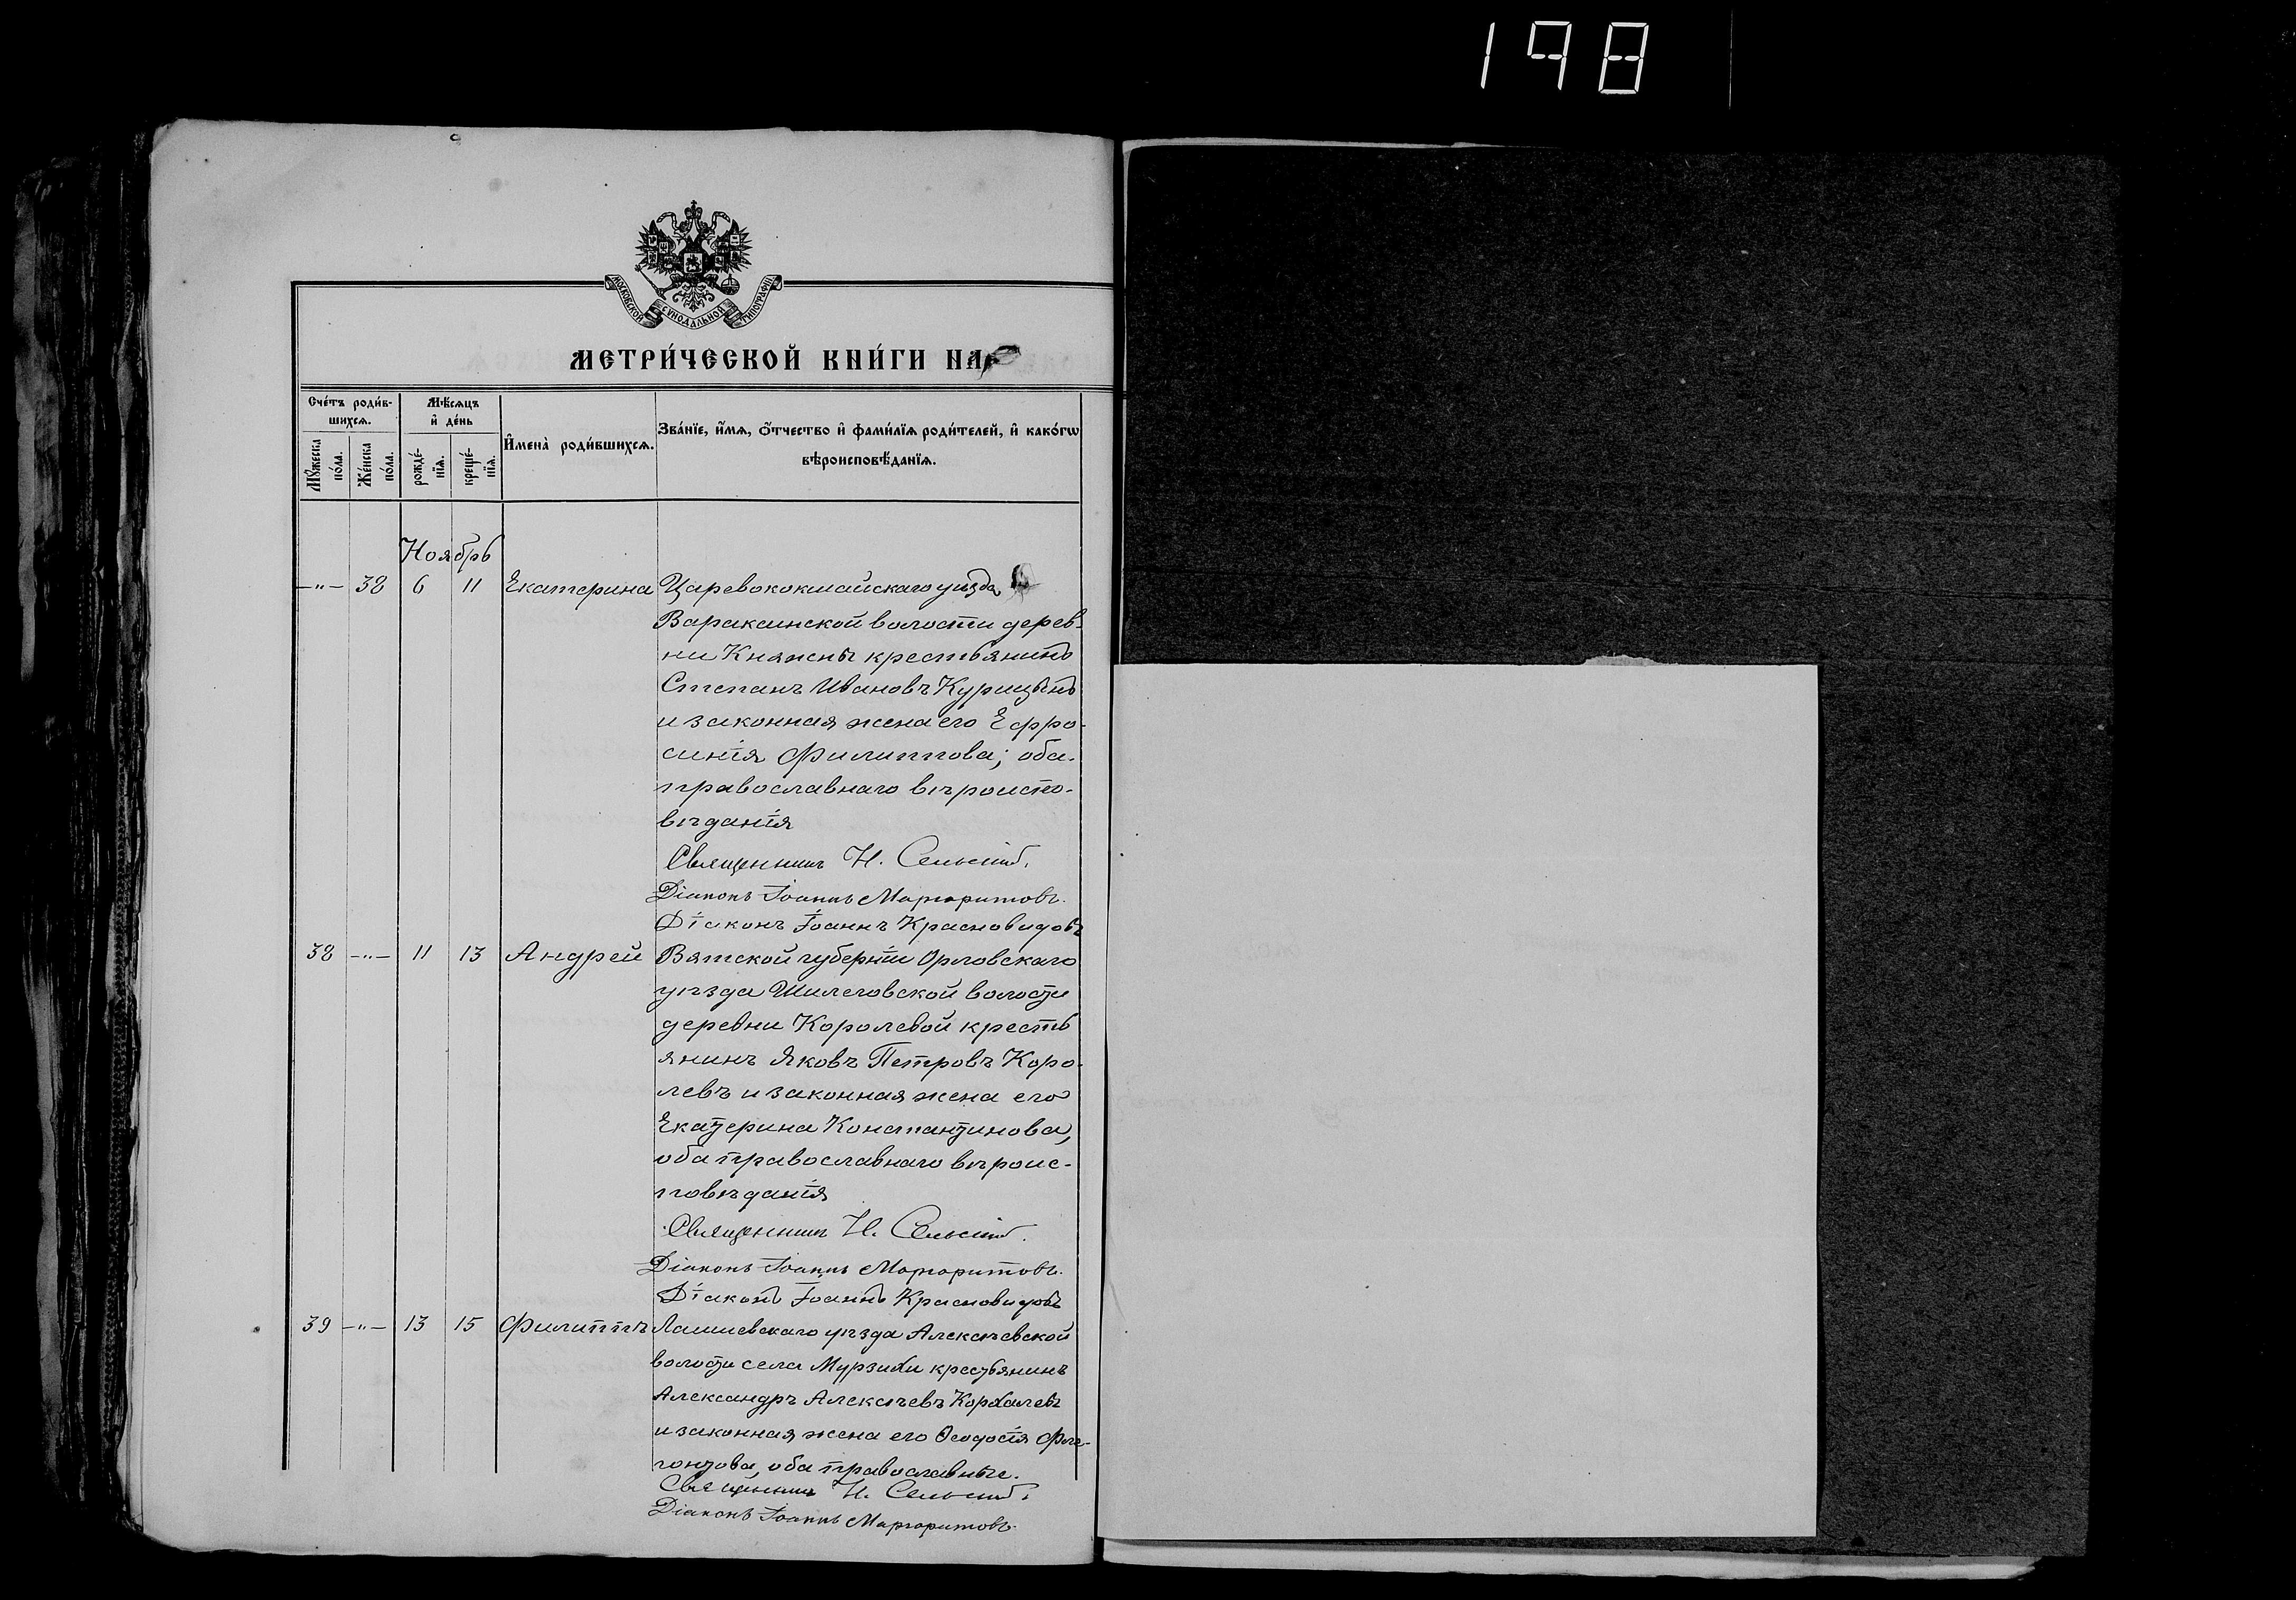 198
МОСКОВСКОЙ СѴНОДАЛЬНОЙ ТИПОГРАФІИ
МЕТРИ́ЧЕСКОЙ КНИ́ГИ НА
Сче́тъ роди́в-
шихсѧ.
Мѣ́сѧцъ
и҆ де́нь
И҆мена̀ роди́вшихсѧ.
Зва́нїе, и҆́мѧ, ѻ҆́тчество и҆ фами́лїѧ роди́телей, и҆ како́гѡ
вѣроисповѣ́данїѧ.
Мꙋ́жеска
по́ла.
Же́нска
по́ла.
рожде́-
нїѧ.
креще́-
нїѧ.
Ноябрь
—"— 38 6 11 Екатерина Царевококшайскаго уѣзда
Вараксинской волости дерев-
ни Княжны крестьянинъ
Степанъ Ивановъ Курицынъ
и законная жена его Ефро-
синія Филиппова; оба
православнаго вѣроиспо-
вѣданія
Священникъ Н. Сельскій.
Діаконъ Іоаннъ Маргаритовъ.
Діаконъ Іоаннъ Красновидовъ
38 —"— 11 13 Андрей Вятской губерніи Орловскаго
уѣзда Шилеговской волости
деревни Королевой кресть
янинъ Яковъ Петровъ Коро-
левъ и законная жена его
Екатерина Константинова,
оба православнаго вѣроис-
повѣданія
Священникъ Н. Сельскій.
Діаконъ Іоаннъ Маргаритовъ.
Діаконъ Іоаннъ Красновидовъ
39 —"— 13 15 Филиппъ Лаишевскаго уѣзда Алексѣевской
волости села Мурзихи крестьянинъ
Александръ Алексѣевъ Корхалевъ
и законная жена его Ѳеодосія Фле-
гонтова, оба православные.
Священникъ Н. Сельскій.
Діаконъ Іоаннъ Маргаритовъ.